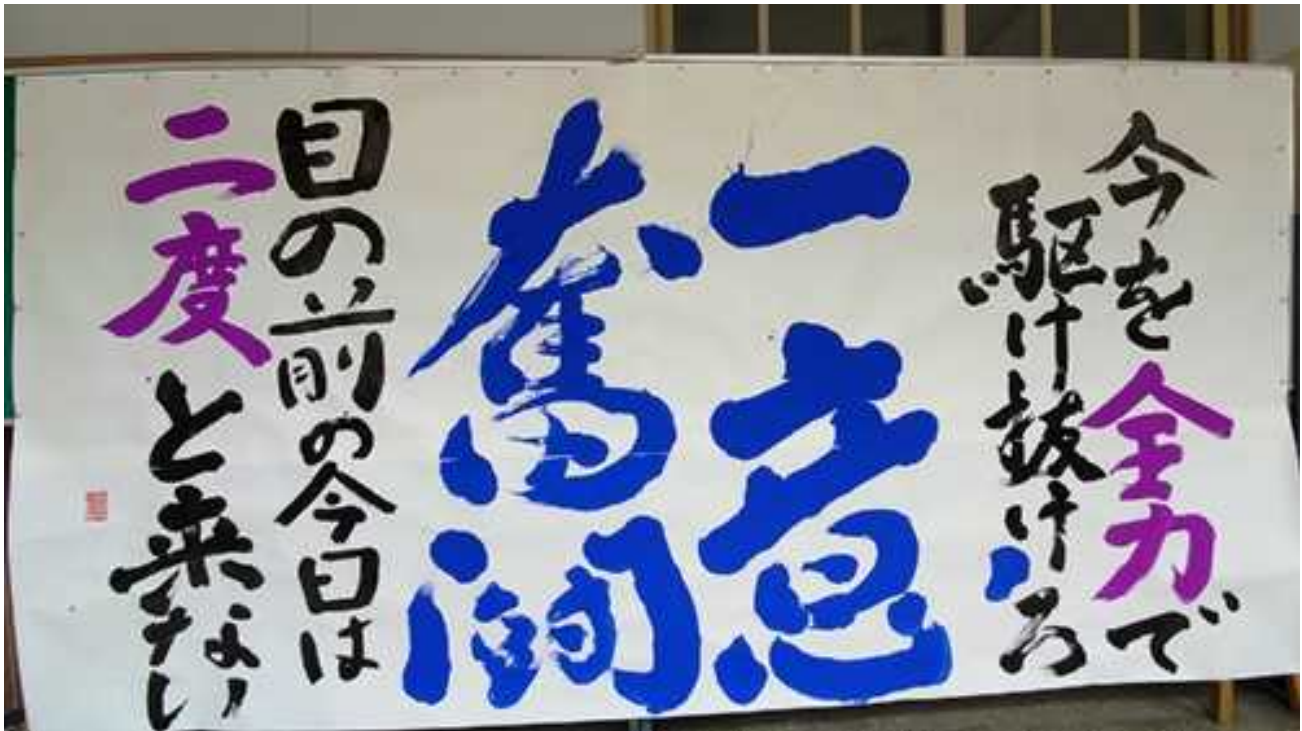 今を全力で
駆け抜けろ
一意
奮闘
目の前の今日は
二度と来ない